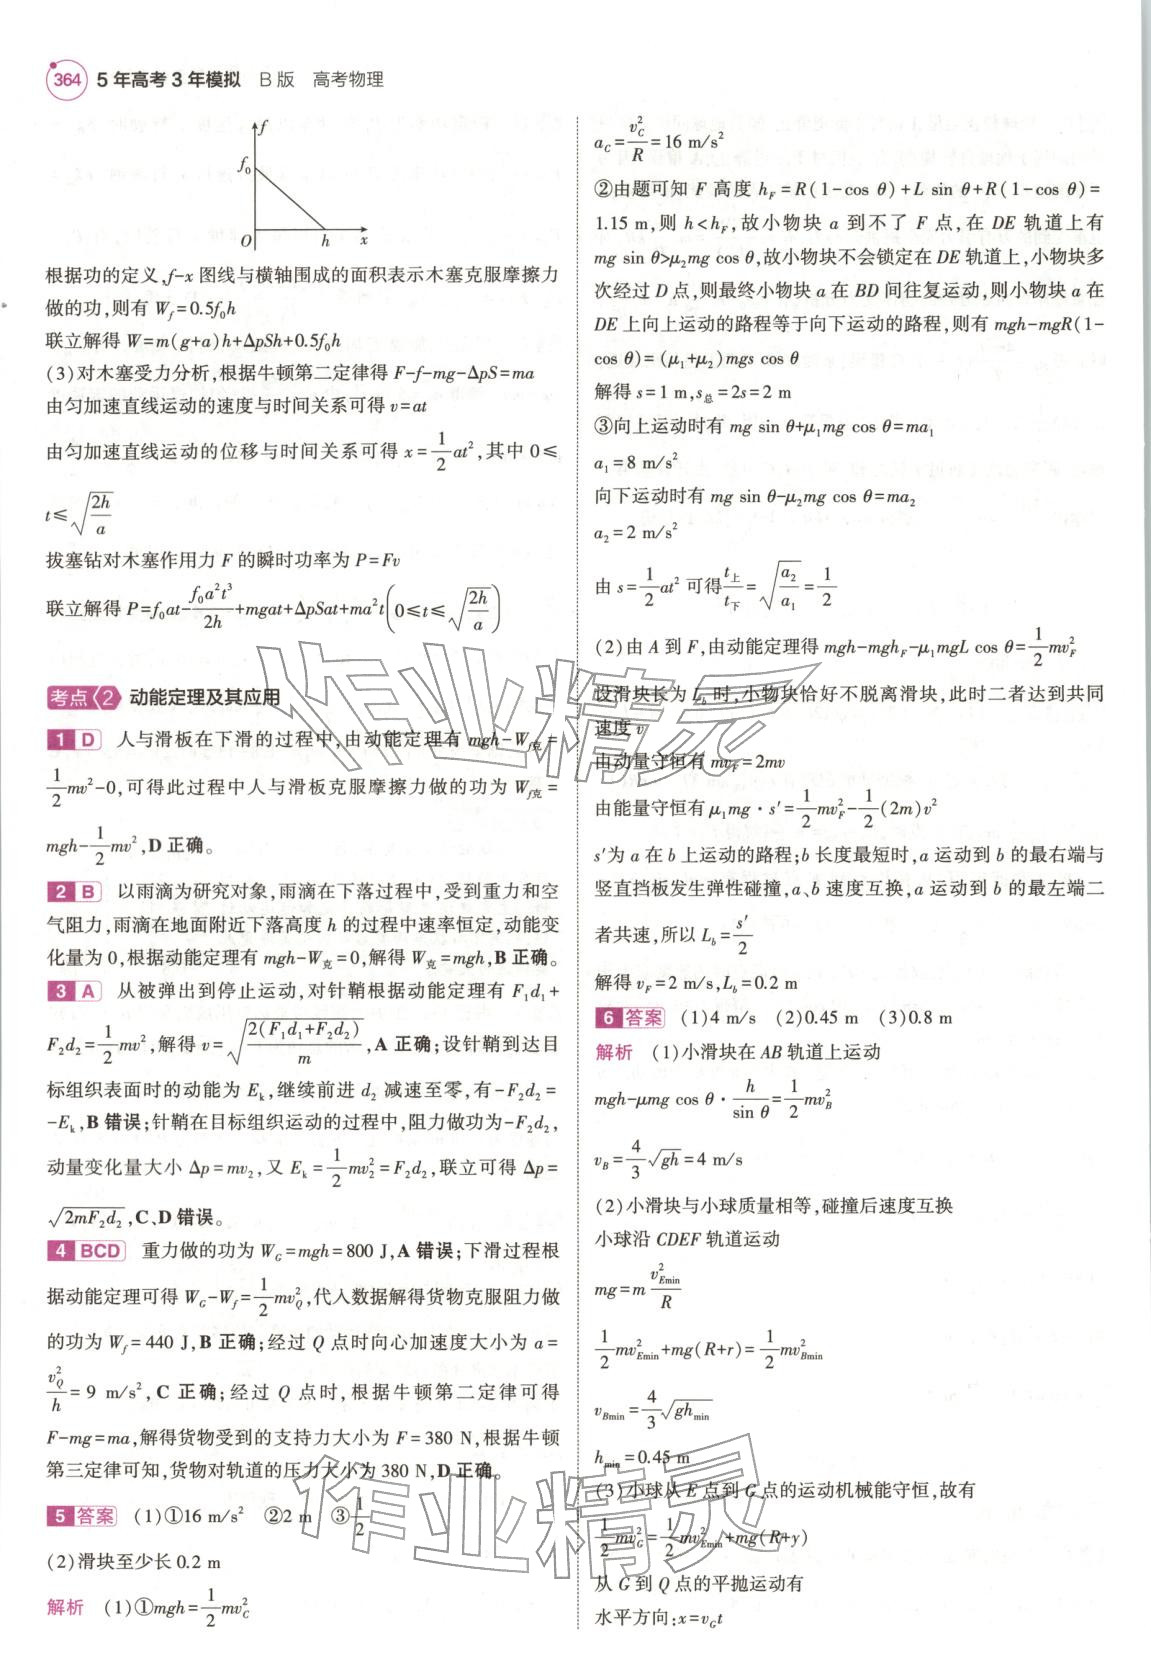 364 5年高考3年模拟 B版 高考物理
f
f₀
O h x
根据功的定义,f-x 图线与横轴围成的面积表示木塞克服摩擦力
做的功,则有 W_f=0.5f₀h
联立解得 W=m(g+a)h+ΔpSh+0.5f₀h
(3)对木塞受力分析,根据牛顿第二定律得 F-f-mg-ΔpS=ma
由匀加速直线运动的速度与时间关系可得 v=at
由匀加速直线运动的位移与时间关系可得 x=\frac{1}{2}at²,其中 0≤
t≤\sqrt{\frac{2h}{a}}
拔塞钻对木塞作用力 F 的瞬时功率为 P=Fv
联立解得 P=f₀at-\frac{f₀a²t³}{2h}+mgat+ΔpSat+ma²t(0≤t≤\sqrt{\frac{2h}{a}})
考点2 动能定理及其应用
1 D 人与滑板在下滑的过程中,由动能定理有 mgh-W_{f克}=
\frac{1}{2}mv²-0,可得此过程中人与滑板克服摩擦力做的功为 W_{f克}=
mgh-\frac{1}{2}mv²,D 正确。
2 B 以雨滴为研究对象,雨滴在下落过程中,受到重力和空
气阻力,雨滴在地面附近下落高度 h 的过程中速率恒定,动能变
化量为 0,根据动能定理有 mgh-W_克=0,解得 W_克=mgh,B 正确。
3 A 从被弹出到停止运动,对针鞘根据动能定理有 F₁d₁+
F₂d₂=\frac{1}{2}mv²,解得 v=\sqrt{\frac{2(F₁d₁+F₂d₂)}{m}},A 正确;设针鞘到达目
标组织表面时的动能为 E_k,继续前进 d₂ 减速至零,有-F₂d₂=
-E_k,B 错误;针鞘在目标组织运动的过程中,阻力做功为-F₂d₂,
动量变化量大小 Δp=mv₂,又 E_k=\frac{1}{2}mv₂²=F₂d₂,联立可得 Δp=
\sqrt{2mF₂d₂},C、D 错误。
4 BCD 重力做的功为 W_G=mgh=800 J,A 错误;下滑过程根
据动能定理可得 W_G-W_f=\frac{1}{2}mv_Q²,代入数据解得货物克服阻力做
的功为 W_f=440 J,B 正确;经过 Q 点时向心加速度大小为 a=
\frac{v_Q²}{h}=9 m/s²,C 正确;经过 Q 点时,根据牛顿第二定律可得
F-mg=ma,解得货物受到的支持力大小为 F=380 N,根据牛顿
第三定律可知,货物对轨道的压力大小为 380 N,D 正确。
5 答案 (1)①16 m/s² ②2 m ③\frac{1}{2}
(2)滑块至少长 0.2 m
解析 (1)①mgh=\frac{1}{2}mv_C²
a_C=\frac{v_C²}{R}=16 m/s²
②由题可知 F 高度 h_F=R(1-cos θ)+L sin θ+R(1-cos θ)=
1.15 m,则 h<h_F,故小物块 a 到不了 F 点,在 DE 轨道上有
mg sin θ>μ₂mg cos θ,故小物块不会锁定在 DE 轨道上,小物块多
次经过 D 点,则最终小物块 a 在 BD 间往复运动,则小物块 a 在
DE 上向上运动的路程等于向下运动的路程,则有 mgh-mgR(1-
cos θ)=(μ₁+μ₂)mgs cos θ
解得 s=1 m,s_总=2s=2 m
③向上运动时有 mg sin θ+μ₁mg cos θ=ma₁
a₁=8 m/s²
向下运动时有 mg sin θ-μ₂mg cos θ=ma₂
a₂=2 m/s²
由 s=\frac{1}{2}at² 可得\frac{t_上}{t_下}=\sqrt{\frac{a₂}{a₁}}=\frac{1}{2}
(2)由 A 到 F,由动能定理得 mgh-mgh_F-μ₁mgL cos θ=\frac{1}{2}mv_F²
设滑块长为 L_b 时,小物块恰好不脱离滑块,此时二者达到共同
速度 v
由动量守恒有 mv_F=2mv
由能量守恒有 μ₁mg·s′=\frac{1}{2}mv_F²-\frac{1}{2}(2m)v²
s′为 a 在 b 上运动的路程;b 长度最短时,a 运动到 b 的最右端与
竖直挡板发生弹性碰撞,a、b 速度互换,a 运动到 b 的最左端二
者共速,所以 L_b=\frac{s′}{2}
解得 v_F=2 m/s,L_b=0.2 m
6 答案 (1)4 m/s (2)0.45 m (3)0.8 m
解析 (1)小滑块在 AB 轨道上运动
mgh-μmg cos θ·\frac{h}{sin θ}=\frac{1}{2}mv_B²
v_B=\frac{4}{3}\sqrt{gh}=4 m/s
(2)小滑块与小球质量相等,碰撞后速度互换
小球沿 CDEF 轨道运动
mg=m\frac{v_{Emin}²}{R}
\frac{1}{2}mv_{Emin}²+mg(R+r)=\frac{1}{2}mv_{Bmin}²
v_{Bmin}=\frac{4}{3}\sqrt{gh_{min}}
h_{min}=0.45 m
(3)小球从 E 点到 G 点的运动机械能守恒,故有
\frac{1}{2}mv_G²=\frac{1}{2}mv_{Emin}²+mg(R+y)
从 G 到 Q 点的平抛运动有
水平方向:x=v_Gt
作业精灵
作业精灵